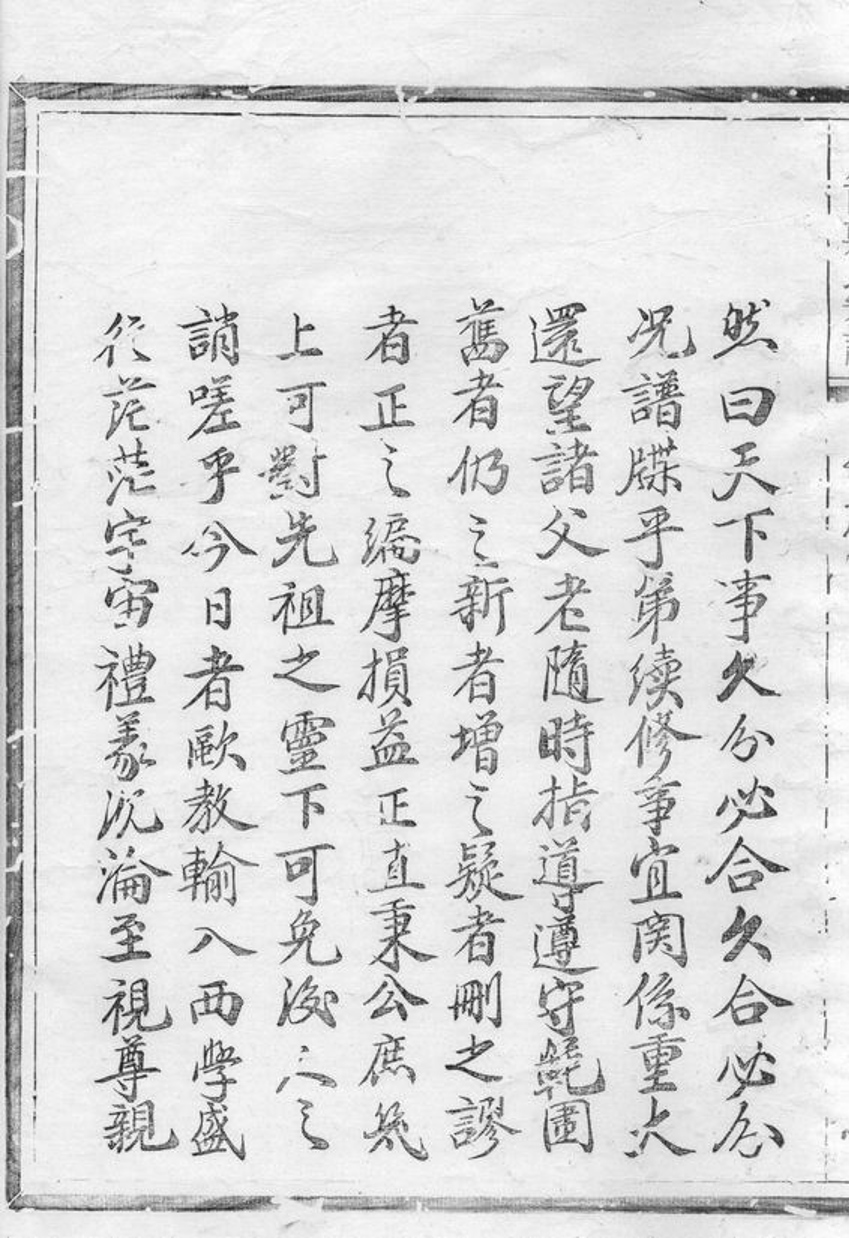 然曰天下事久分必合久合必分
况譜牒乎第续修事宜関係重大
還望諸父老隨時指導遵守範圍
舊者仍之新者增之疑者刪之謬
者正之編摩損益正直秉公庶幾
上可對先祖之靈下可免後人之
誚嗟乎今日者歐教輸入西學盛
行茫茫宇宙禮義沉淪至視尊親